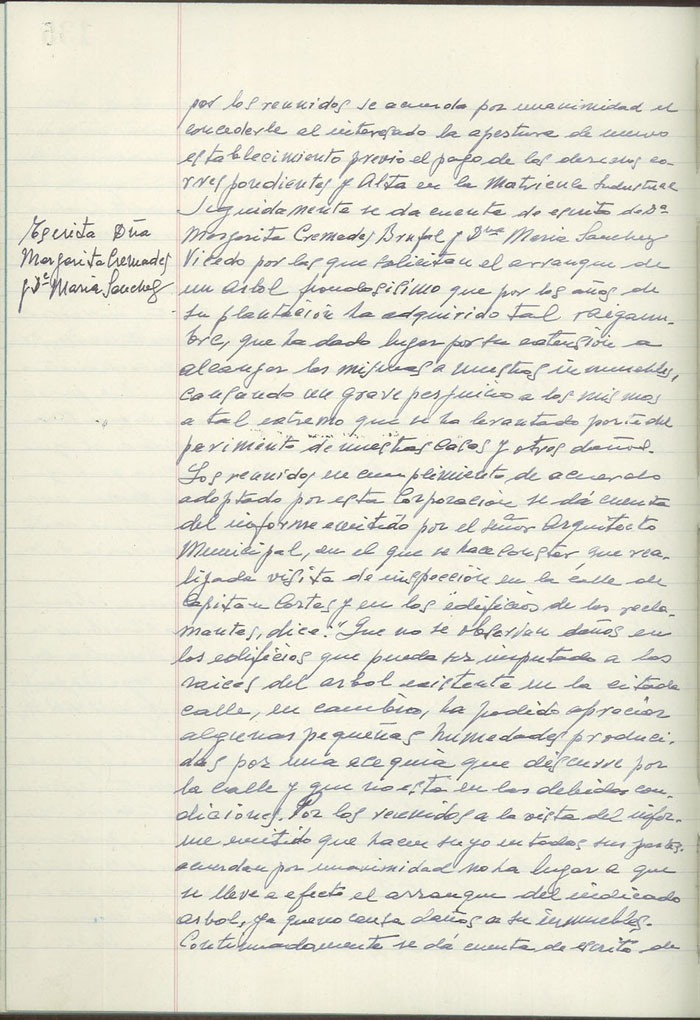 por los reunidos se acuerda por unanimidad el
concederle al interesado la apertura de nuevo
establecimiento previo el pago de los derechos co-
rrespondientes y Alta en la Matricula Industrial
Seguidamente se da cuenta de escrito de Dª
Escrito Dña
Margarita Cremades
y Dª Maria Sanchez
Margarita Cremades Brufal y Dña Maria Sanchez
Vicedo por los que solicitan el arranque de
un arbol frondosisimo que por los años de
su plantación ha adquirido tal raigam-
bre, que ha dado lugar por su extensión a
alcanzar las mismas a nuestros inmuebles,
causando un grave perjuicio a los mismos
a tal extremo que se ha levantado parte del
pavimento de nuestras casas y otros daños.
Los reunidos en cumplimiento de acuerdo
adoptado por esta Corporación se dá cuenta
del informe emitido por el señor Arquitecto
Municipal, en el que se hace constar, que rea-
lizada visita de inspección en la calle de
Capitan Cortes y en los edificios de los recla-
mantes, dice: "Que no se observan daños en
los edificios que pueda ser imputado a las
raices del arbol existente en la citada
calle, en cambio, ha podido apreciar
algunas pequeñas humedades produci-
das por una acequia que discurre por
la calle y que no esta en las debidas con-
diciones. Por los reunidos a la vista del infor-
me emitido que hacen suyo en todas sus partes,
acuerdan por unanimidad no ha lugar a que
se lleve a efecto el arranque del indicado
arbol, ya que no causa daños a su inmuebles.
Continuadamente se dá cuenta de escrito de